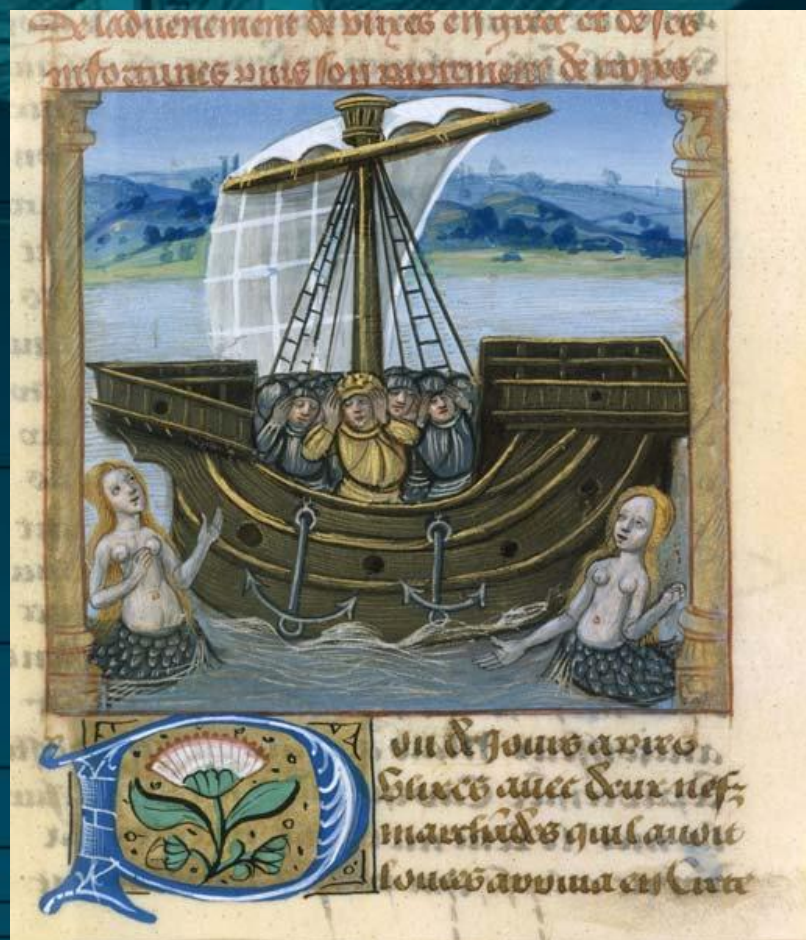 De laduenement de vlixes en grece et de ses
infortunes puis son partement de troyes
Pou de Jours apres
vlixes auec deux nefz
marchãdes quil auoit
louees arriua en Crete